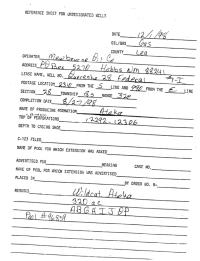 REFERENCE SHEET FOR UNDESIGNATED WELLS
DATE 12/1/98
OIL/GAS GAS
COUNTY Lea
OPERATOR Mewbourne Oil Co
ADDRESS PO Box 5270 Hobbs NM 88241
LEASE NAME, WELL NO. 28 Federal
FOOTAGE LOCATION FROM THE S LINE AND FROM THE E LINE
SECTION 28 TOWNSHIP RANGE 32e
COMPLETION DATE 8/27/98
NAME OF PRODUCING FORMATION Atoka
TOP OF PERFORATIONS 12292-12306
DEPTH TO CASING SHOE
C-123 FILED
NAME OF POOL FOR WHICH EXTENSION WAS ASKED
ADVERTISED FOR HEARING CASE NO.
NAME OF POOL FOR WHICH EXTENSION WAS ADVERTISED
PLACED IN BY ORDER NO. R-
REMARKS Wildcat Atoka
320 ac
ABGHIJOP